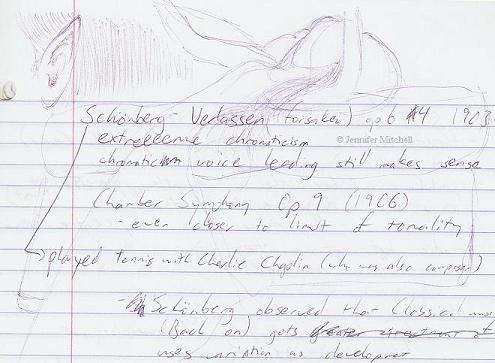 Schönberg - Verlassen (forsaken) op 6 #4 1903-
extreeeeme chromaticism
© Jennifer Mitchell
chromatic voice leading still makes sense
Chamber Symphony Op 9 (1906)
- even closer to limit of tonality
played tennis with Charlie Chaplin (who was also composer)
- Schönberg observed that Classical
(Bach on) gets
uses variation as development